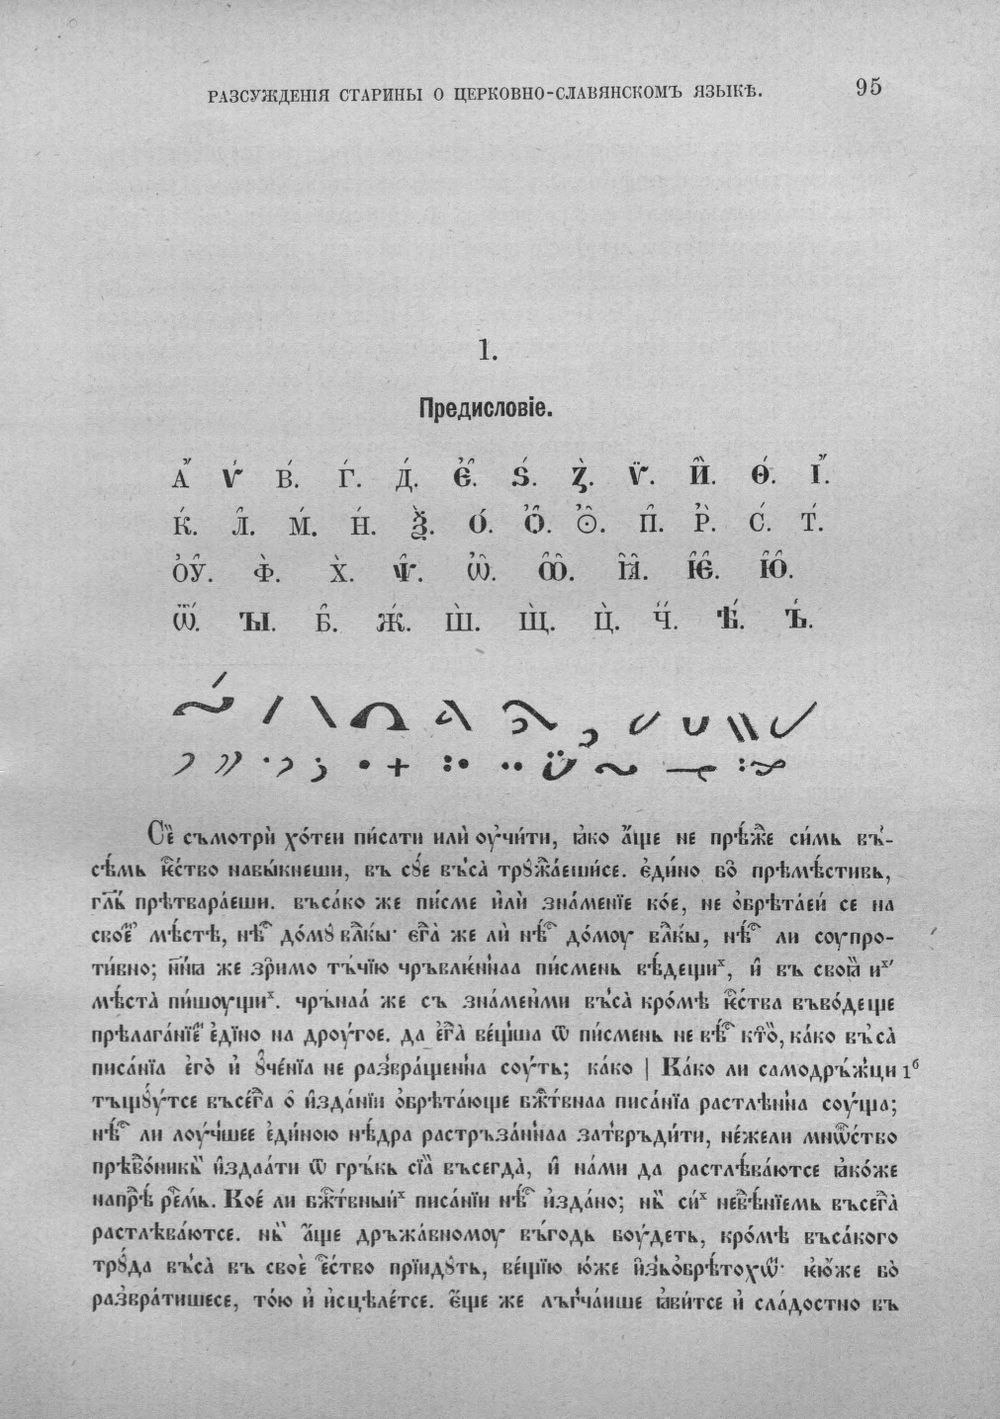 РАЗСУЖДЕНІЯ СТАРИНЫ О ЦЕРКОВНО-СЛАВЯНСКОМЪ ЯЗЫКѢ. 95
1.
Предисловіе.
А҆̋ Ѵ́ В́. Ѓ. Д́. Є҆̑. Ѕ́. Ꙁ̀. Ѵ̈. И҆̑. Ѳ́. І҆̋.
Ќ. Л̑. М́. Н́. Ѯ̀. О́. Ѻ҆̑. Ꙫ҆̑. П̑. Р҆̀. С́. Т́.
Ѹ҆̑. Ф̀. Х̀. Ѱ̑. Ѡ҆̑. Ѡ҆̑. Ꙗ҆̑. Ѥ҆̑. Ю҆̑.
Ѿ. Ꙑ. Б̑. Ж́. Ш̀. Щ̀. Ц̀. Ч̋. Ѣ́. Ъ́.
Се҆̀ съмотрѝ хо́теи пи́сати илѝ оу҆чи́ти, ꙗ҆ко а҆́ще не прѣ́ж҇е си́мь въ҆-
сѣ́мь ѥ҇с́тво навы́кнеши, въ сꙋ́е въ҆са̀ трꙋж҇а́еши́се. є҆ди́но бо҆̀ прѣмѣ́стивь,
гл҃ѣ прѣтвара́еши. въса́ко же пи́сме и҆лѝ зна́менїе ко́е, не ѡ҆брѣта́еи́ се на
свое҆́ мѣ́стѣ, нѣ҇ до́мꙋ влк҃ы· ег҃а̀ же лѝ нѣ҇ до́моу влк҃ы, нѣ҇ ли соупро-
ти́вно; нн҃ꙗ же зри́мо тъ́чїю чръвлѥ́н҆наа пи́смень вѣ́дещиⷯ, и҆̑ въ своꙗ҆̑ иⷯ
мѣ́ста пи́шоущиⷯ. чръ́наа́ же съ зна́менми въ҆са̀ кро́мѣ ѥ҇с́тва въво́деще
прѣлага́нїе є҆ди́но на дроу́гое. да е҆г҃а̀ ве́щьша ѿ пи́смень не вѣ҇ кт҃о, ка́ко въ҆са̀
писа́нїа е҆го̀ и҆̀ ᲂу҆че́нїа не ра́звра́щен҆на соу́ть; ка́ко | Ка́ко ли самодръ́ж҆ци 1ᵇ
тъщꙋ́утсе въсег҃а о҆̀ и҆зда́нїи ѡ҆брѣта́юще бж҃твнаа писа́нїа растлѣ́н҆на соу́ща;
нѣ҇ ли лоу́ч҆шее є҆ди́ною нѣ́дра растръза́н҆наа затвръди́ти, не́жели мнѡ҇ство
прѣво́никъ и҆здаа́ти ѿ гръ́кь сїа̀ въсегда̀, и҆̑ на́ми да растлѣва́ютсе ꙗ҆ко́же
напр҇ѣ ре҇мь. Кое́ ли бж҃твныиⷯ писа́нїи нѣ҇ и҆зда́но; нѫ си́ⷯ невѣ҇нїемь въсег҃а̀
растлѣва́ютсе. нъ а҆́ще дръжа́вномоу въ́годь боу́деть, кро́мѣ въса́кого
трꙋ́да въ҆са̀ въ своѐ е҇ство прїи́дꙋть, ве́щїю ю҆́же и҆зьѡ҆брѣ́тохѡ҆̑· ѥ҆ю́же бо̀
ра́звра́тишесе, то́ю и҆̀ и҆сцѣле́тсе. є҆́ще же лъг҆ча́ише ꙗ҆ви́тсе и҆̀ сла́достно въ